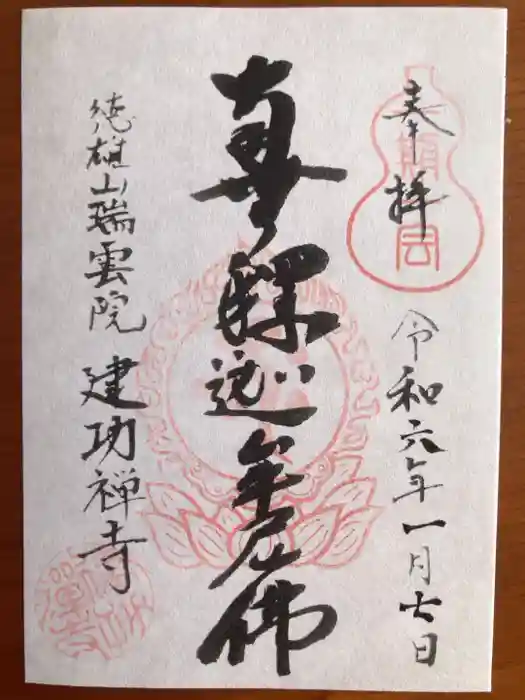 奉拝
令和六年一月七日
南無釋迦牟尼佛
徳雄山瑞雲院 建功禅寺